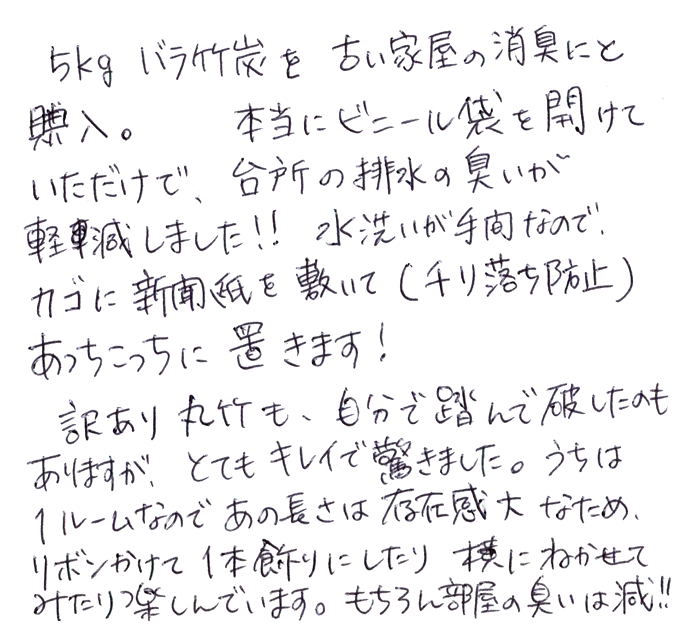 5kg バラ竹炭を 古い家屋の消臭にと
購入。 本当にビニール袋を開けて
いただけで、台所の排水の臭いが
軽減しました!! 水洗いが手間なので、
カゴに新聞紙を敷いて(チリ落ち防止)
あっちこっちに置きます!
訳あり丸竹も、自分で踏んで破したのも
ありますが、とてもキレイで驚きました。うちは
1ルームなのであの長さは存在感大なため、
リボンかけて1本飾りにしたり横にねかせて
みたり楽しんでいます。もちろん部屋の臭いは減!!